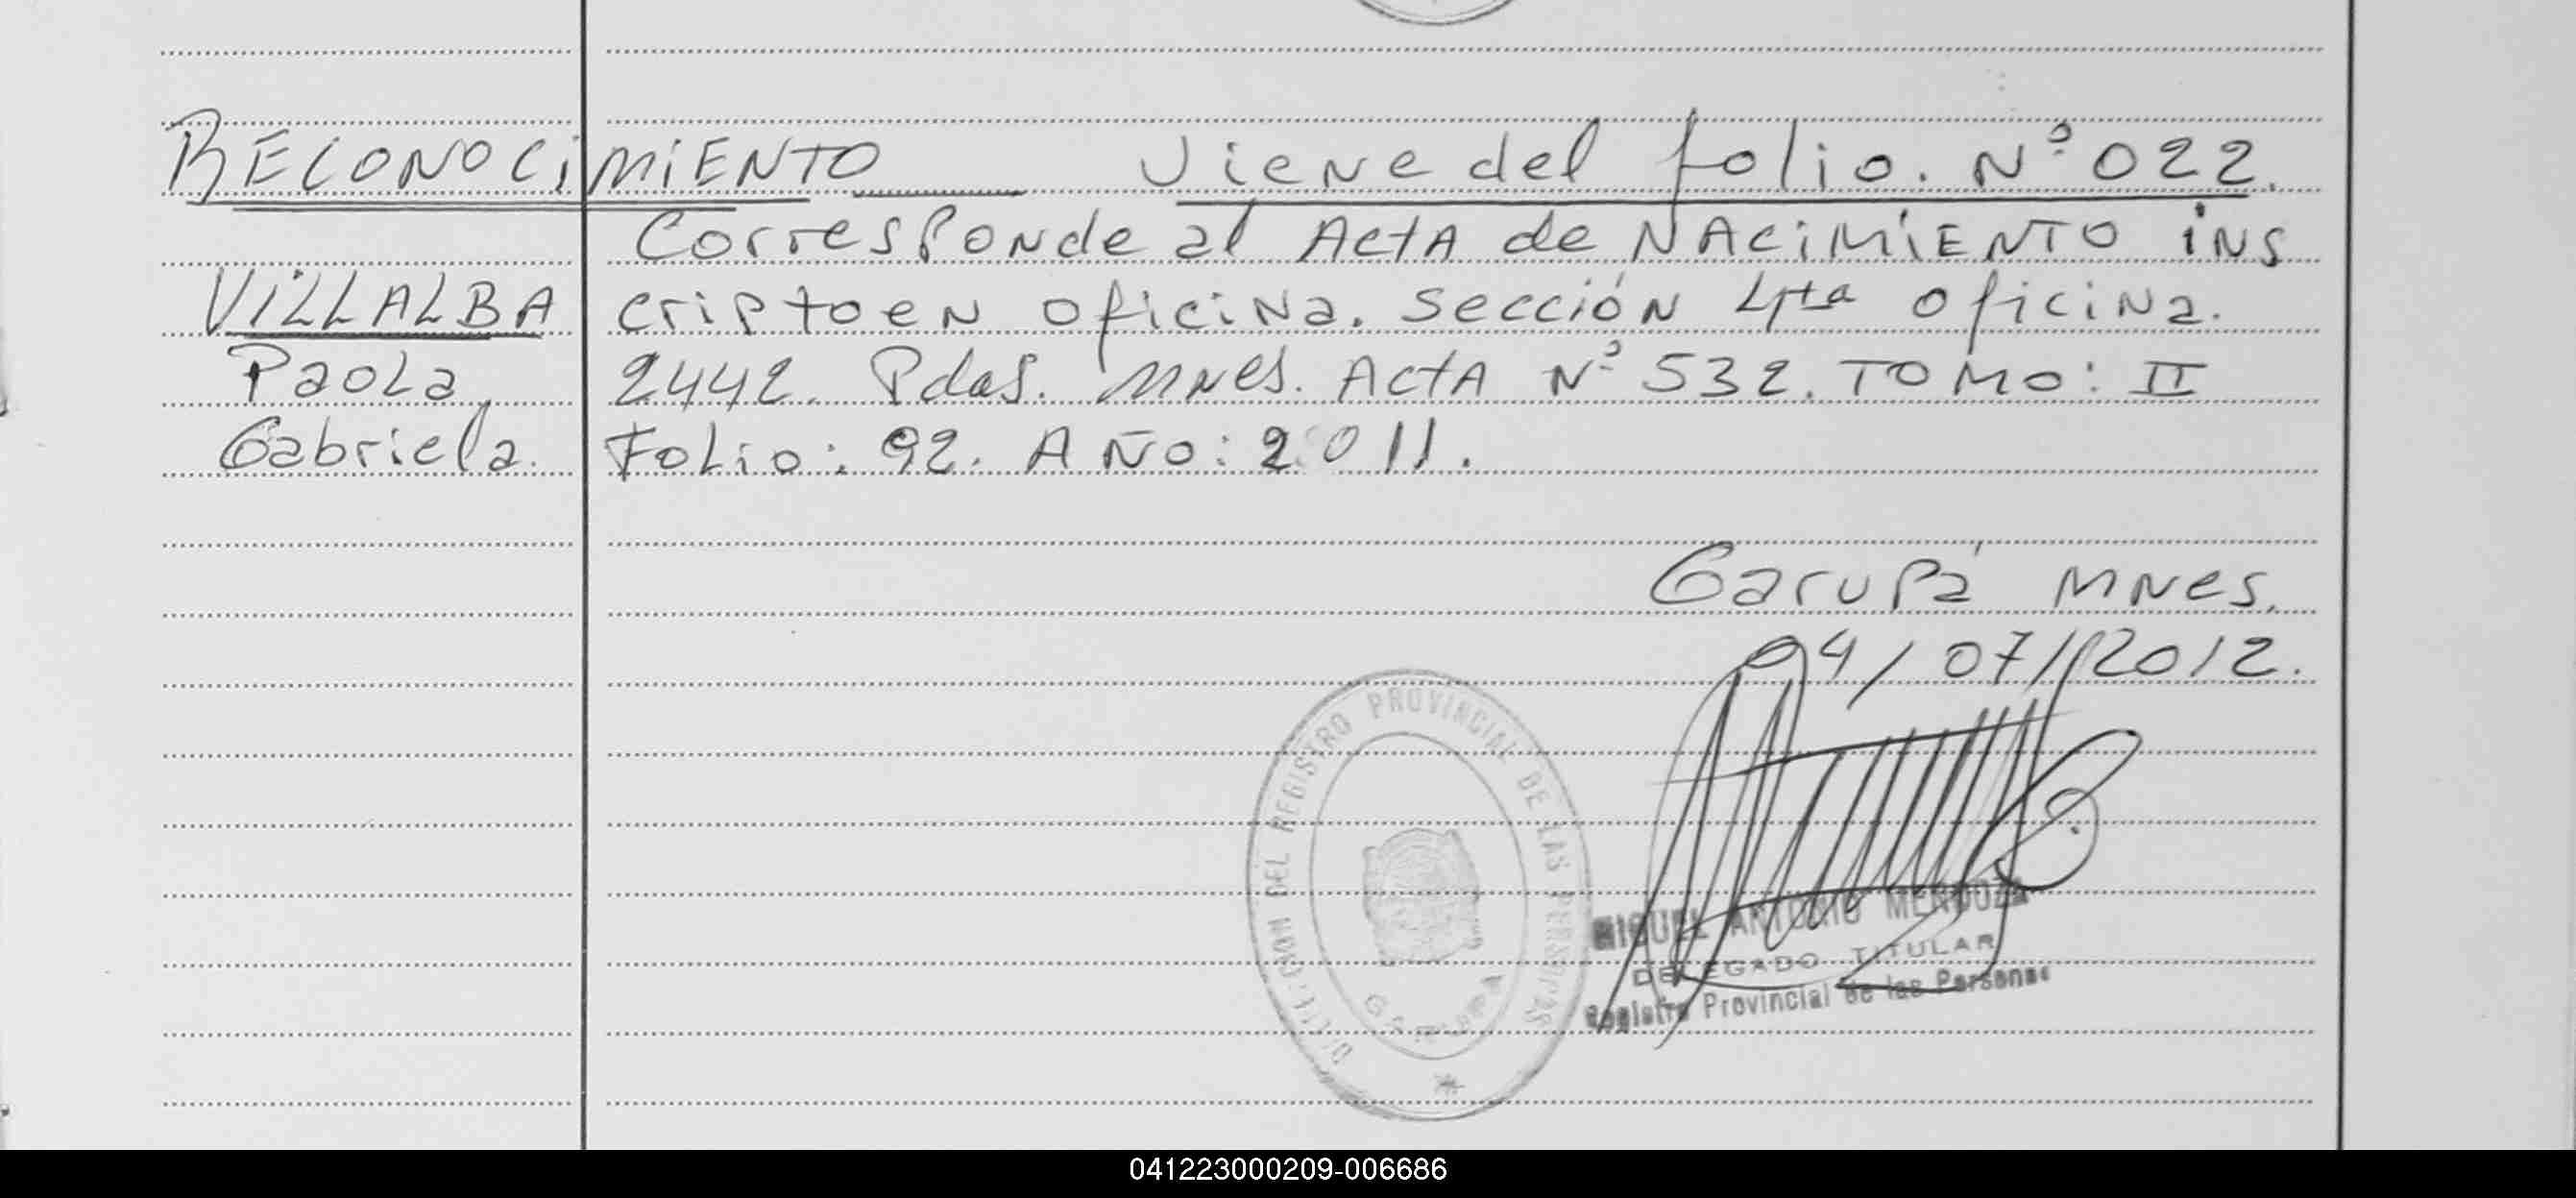 RECONOCIMIENTO Viene del folio. Nº 022.
Corresponde al Acta de NACIMIENTO ins
VILLALBA criptoen oficina. Sección 4ta oficina.
Paola 2442. Pdas. Mnes. Acta Nº 532. TOMO: II
Gabriela. Folio: 92. AÑO: 2011.
Garupá Mnes.
04/07/2012.
DIRECCION DEL REGISTRO PROVINCIAL DE LAS PERSONAS
GARUPA
MIGUEL ANTONIO MENDOZA
DELEGADO TITULAR
Registro Provincial de las Personas
041223000209-006686